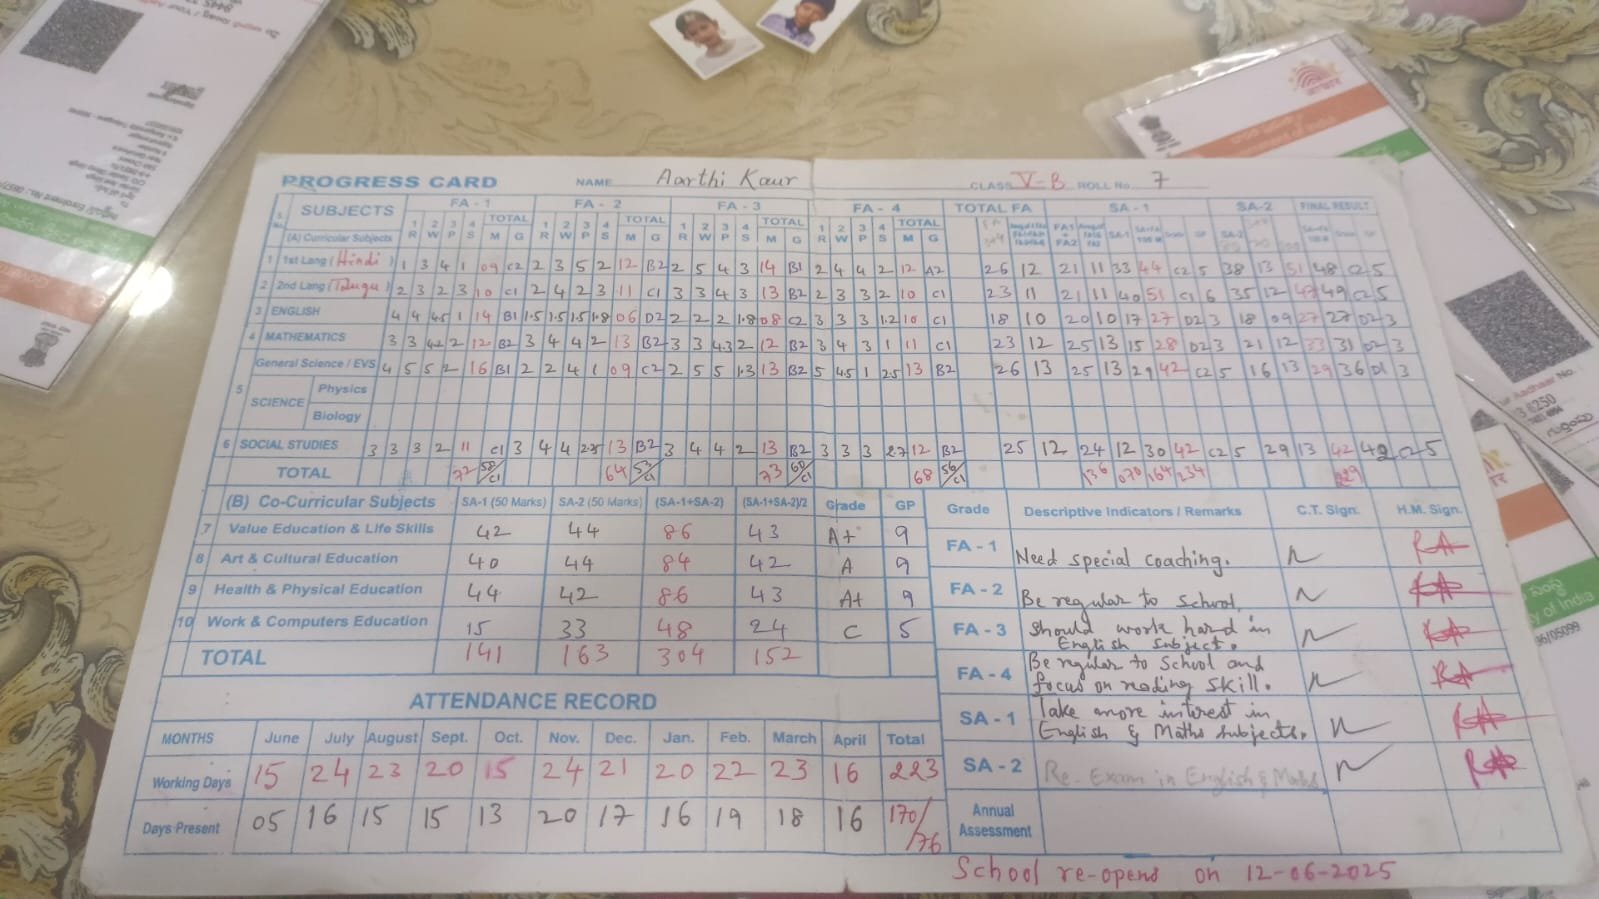 PROGRESS CARD NAME Aarthi Kaur CLASS V-B ROLL No. 7
S. No. SUBJECTS FA - 1 FA - 2 FA - 3 FA - 4 TOTAL FA SA - 1 SA - 2 FINAL RESULT
1 R 2 W 3 P 4 S TOTAL 1 R 2 W 3 P 4 S TOTAL 1 R 2 W 3 P 4 S TOTAL 1 R 2 W 3 P 4 S TOTAL FA1 + FA2 SA-1
(A) Curricular Subjects M G M G M G M G
1 1st Lang (Hindi) 1 3 4 1 09 C2 2 3 5 2 12 B2 2 5 4 3 14 B1 2 4 4 2 12 A2 26 12 21 11 33 44 C2 5 38 13 51 48 C2 5
2 2nd Lang (Telugu) 2 3 2 3 10 C1 2 4 2 3 11 C1 3 3 4 3 13 B2 2 3 3 2 10 C1 23 11 21 11 40 51 C1 6 35 12 49 C2 5
3 ENGLISH 4 4 4.5 1 14 B1 1.5 1.5 1.5 1.8 06 D2 2 2 2 1.8 08 C2 3 3 3 1.2 10 C1 18 10 20 10 17 27 D2 3 18 09 27 27 D2 3
4 MATHEMATICS 3 3 4.2 2 12 B2 3 4 4 2 13 B2 3 3 4.3 2 12 B2 3 4 3 1 11 C1 23 12 25 13 15 28 D2 3 21 12 33 31 D2 3
General Science / EVS 4 5 5 2 16 B1 2 2 4 1 09 C2 2 5 5 1.3 13 B2 5 4.5 1 2.5 13 B2 26 13 25 13 29 42 C2 5 16 13 29 36 D1 3
5 SCIENCE Physics
Biology
6 SOCIAL STUDIES 3 3 3 2 11 C1 3 4 4 2.25 13 B2 3 4 4 2 13 B2 3 3 3 2.7 12 B2 25 12 24 12 30 42 C2 5 29 13 42 42 C2 5
TOTAL 72 58/C1 64 53/C1 73 60/C1 68 56/C1 136 070 164 234
(B) Co-Curricular Subjects SA-1 (50 Marks) SA-2 (50 Marks) (SA-1+SA-2) (SA-1+SA-2)/2 Grade GP
7 Value Education & Life Skills 42 44 86 43 A+ 9
8 Art & Cultural Education 40 44 84 42 A 9
9 Health & Physical Education 44 42 86 43 A+ 9
10 Work & Computers Education 15 33 48 24 C 5
TOTAL 141 163 304 152
ATTENDANCE RECORD
MONTHS June July August Sept. Oct. Nov. Dec. Jan. Feb. March April Total
Working Days 15 24 23 20 15 24 21 20 22 23 16 223
Days Present 05 16 15 15 13 20 17 16 19 18 16 170/76
Grade Descriptive Indicators / Remarks C.T. Sign. H.M. Sign.
FA - 1 Need special coaching.
FA - 2 Be regular to school.
FA - 3 should work hard in
English subject.
FA - 4 Be regular to School and
focus on reading skill.
SA - 1 Take more interest in
English & Maths subjects.
SA - 2 Re. Exam in English & Maths
Annual
Assessment
School re-opens on 12-06-2025